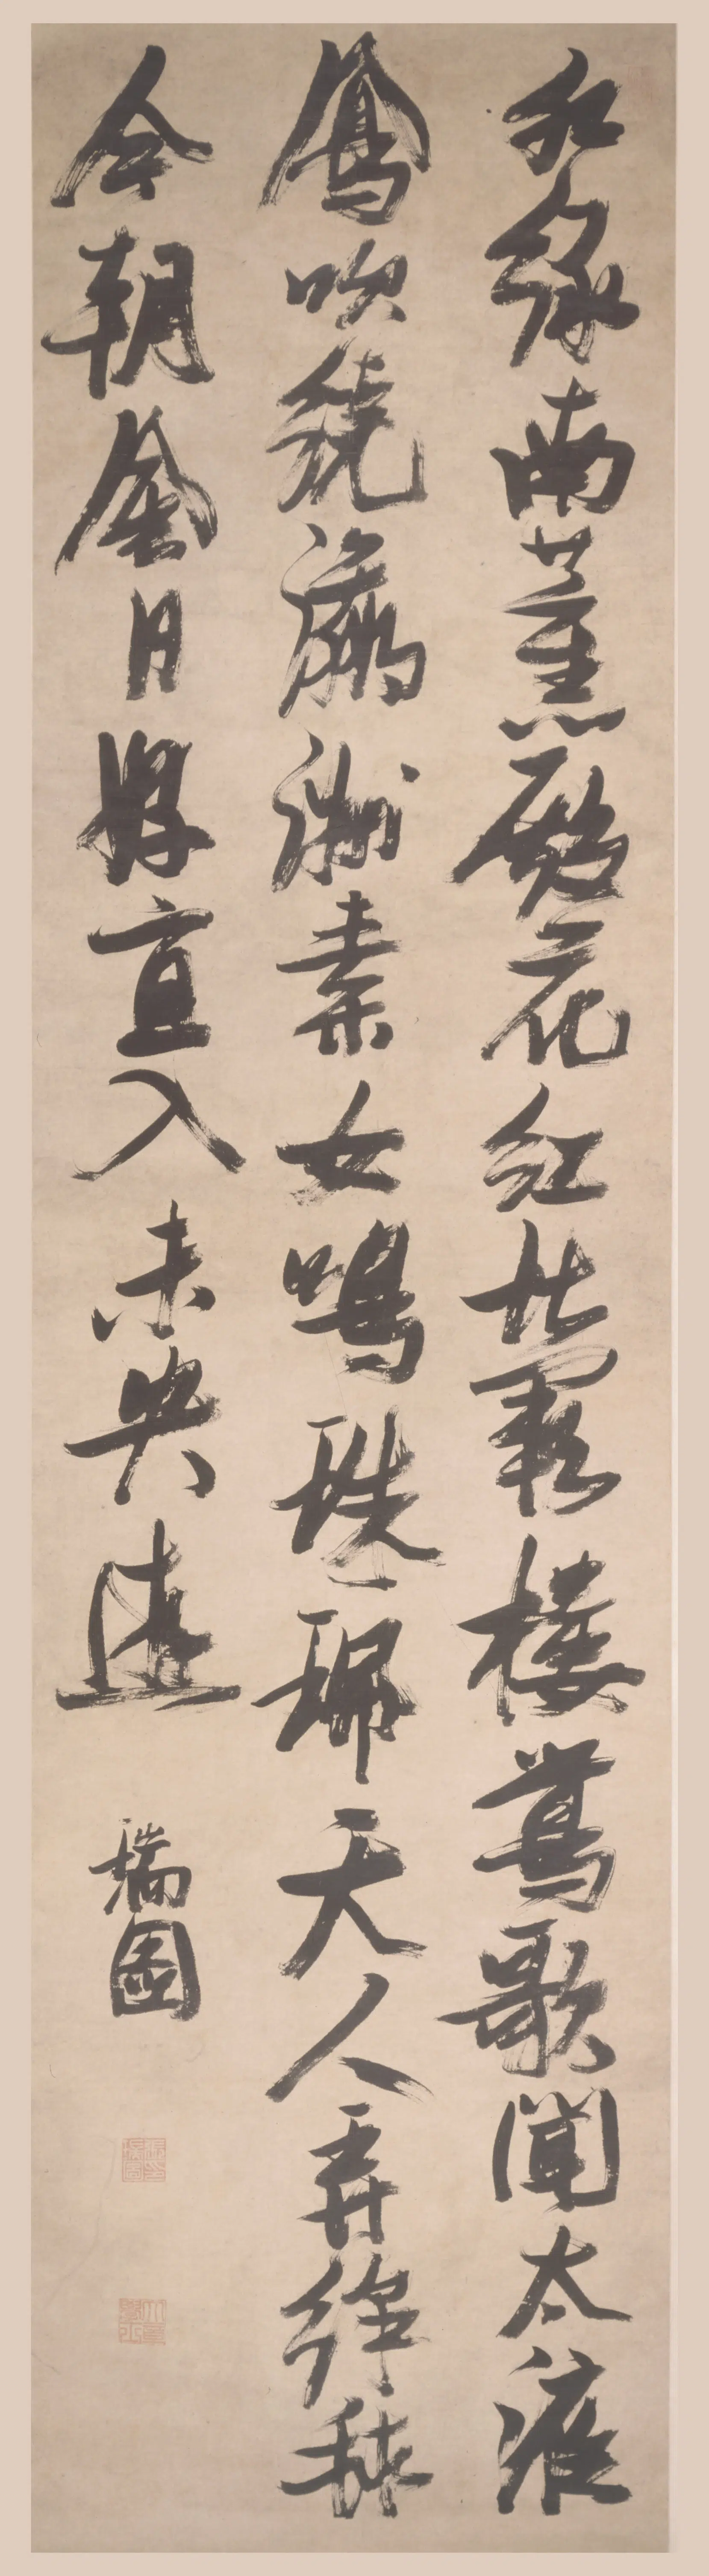 水綠南薰殿花紅北闕樓鶯歌聞太液
鳳吹繞瀛洲素女鳴珠珮天人弄綵毬
今朝風日好宜入未央遊
瑞圖